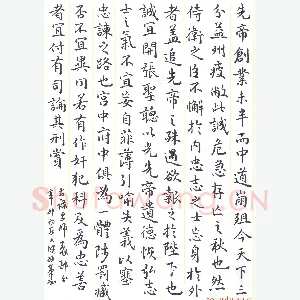 先帝創業未半而中道崩殂今天下三
分益州疲敝此誠危急存亡之秋也然
侍衛之臣不懈於內忠志之士忘身於外
者蓋追先帝之殊遇欲報之於陛下也
誠宜開張聖聽以光先帝遺德恢弘志
士之氣不宜妄自菲薄引喻失義以塞
忠諫之路也宮中府中俱為一體陟罰臧
否不宜異同若有作奸犯科及為忠善
者宜付有司論其刑賞